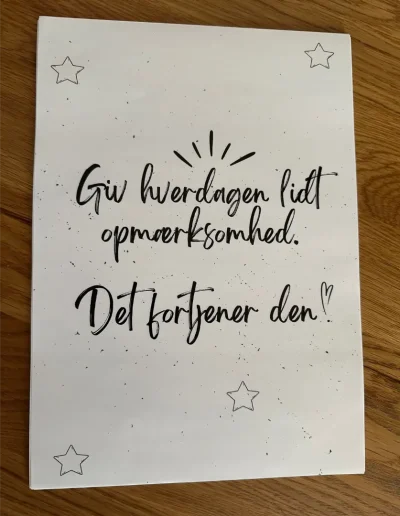 Giv hverdagen lidt
opmærksomhed.
Det fortjener den!